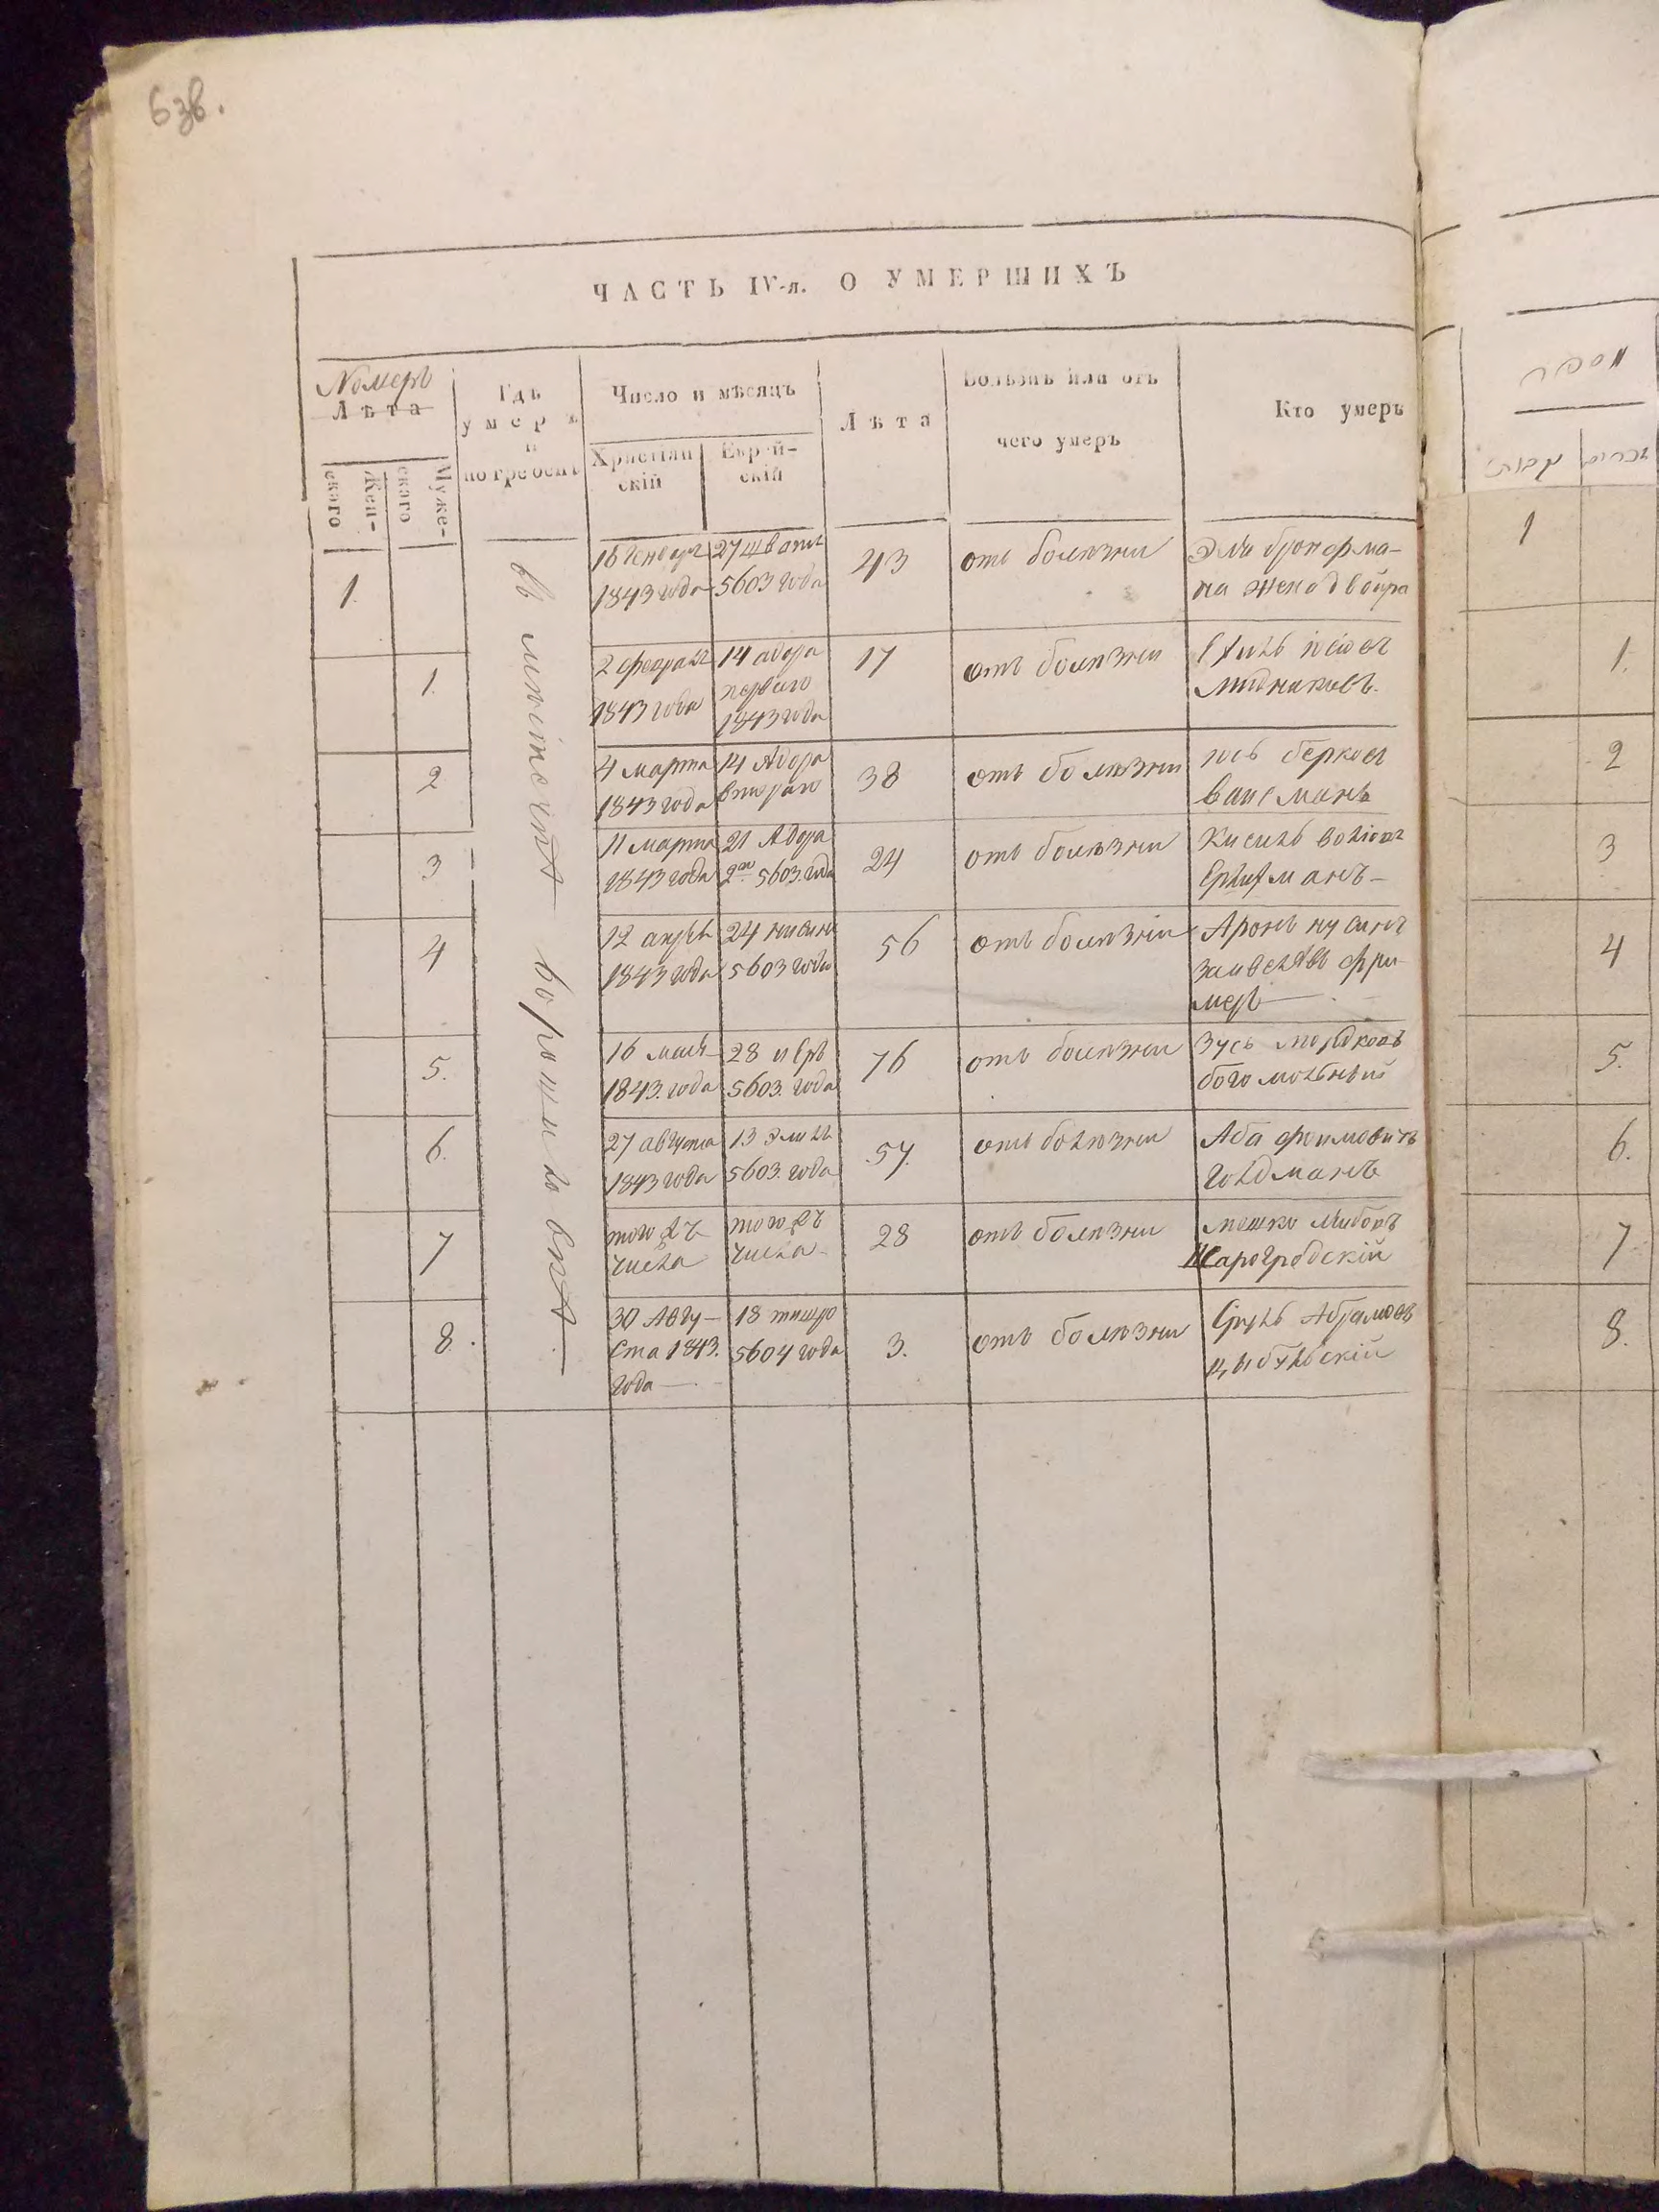 63в.
ЧАСТЬ IV-я. О УМЕРШИХЪ
Номеръ
Лѣта
Жен-
скаго
Муже-
скаго
Гдѣ
умеръ
и
погребенъ
Число и мѣсяцъ
Христіян
скій
Еврей-
скій
Лѣта
Болѣзнь или отъ
чего умеръ
Кто умеръ
1.
16 генваря
1843 года
27 швата
5603 года
43
отъ болѣзни
Эли бронфма-
на жена двойра
1.
2 февраля
1843 года
14 адора
перваго
1843 года
17
отъ болѣзни
2
4 марта
1843 года
14 Адора
втораго
38
отъ болѣзни
іось беркова
ваисманъ
3
11 марта
1843 года
21 Адора
2го 5603. года
24
отъ болѣзни
Кисиль
4
12 апрѣл
1843 года
24 нисана
5603 года
56
отъ болѣзни
Аронъ нусинъ
5.
16 мая
1843. года
28 иеръ
5603. года
76
отъ болѣзни
Зусь мордковъ
богомольный
6.
27 августа
1843 года
13 элиль
5603. года
57.
отъ болѣзни
Аба фроимовичъ
голдманъ
7
того жъ
числа
того жъ
числа
28
отъ болѣзни
мошко лейбовъ
Шарогродскій
8.
30 Авгу-
ста 1843.
года
18 тишро
5604 года
3.
отъ болѣзни
Сруль Абрамовъ
въ мѣстечкѣ
1
1.
2
3
4
5.
6.
7
8.